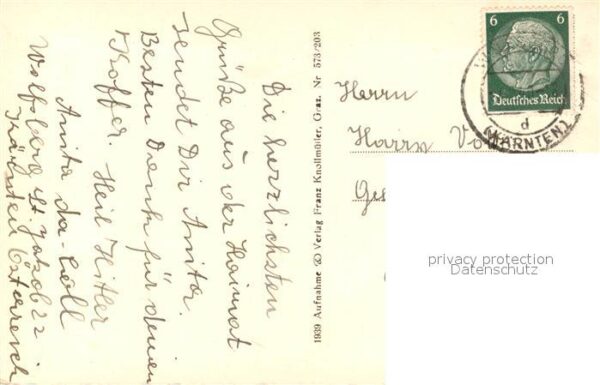 Die herzlichsten
Grüße aus der Heimat
sendet Dir Anita.
Besten Dank für deinen
Koffer. Heil Hitler
Anita da-Coll
Wolfsberg St. Jakob 22
Kärnten Österreich
1939 Aufnahme Verlag Franz Knollmüller, Graz. Nr 573/203
Herrn
Harry
6 6
Deutsches Reich
d
(KÄRNTEN)
privacy protection
Datenschutz